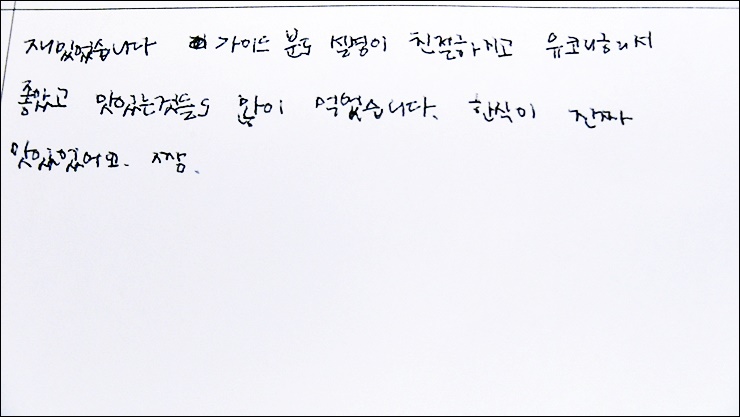 재밌었습니다 가이드 분도 설명이 친절하시고 유쾌하셔서
좋았고 맛있는것들도 많이 먹었습니다. 한식이 진짜
맛있었어요. 짱.